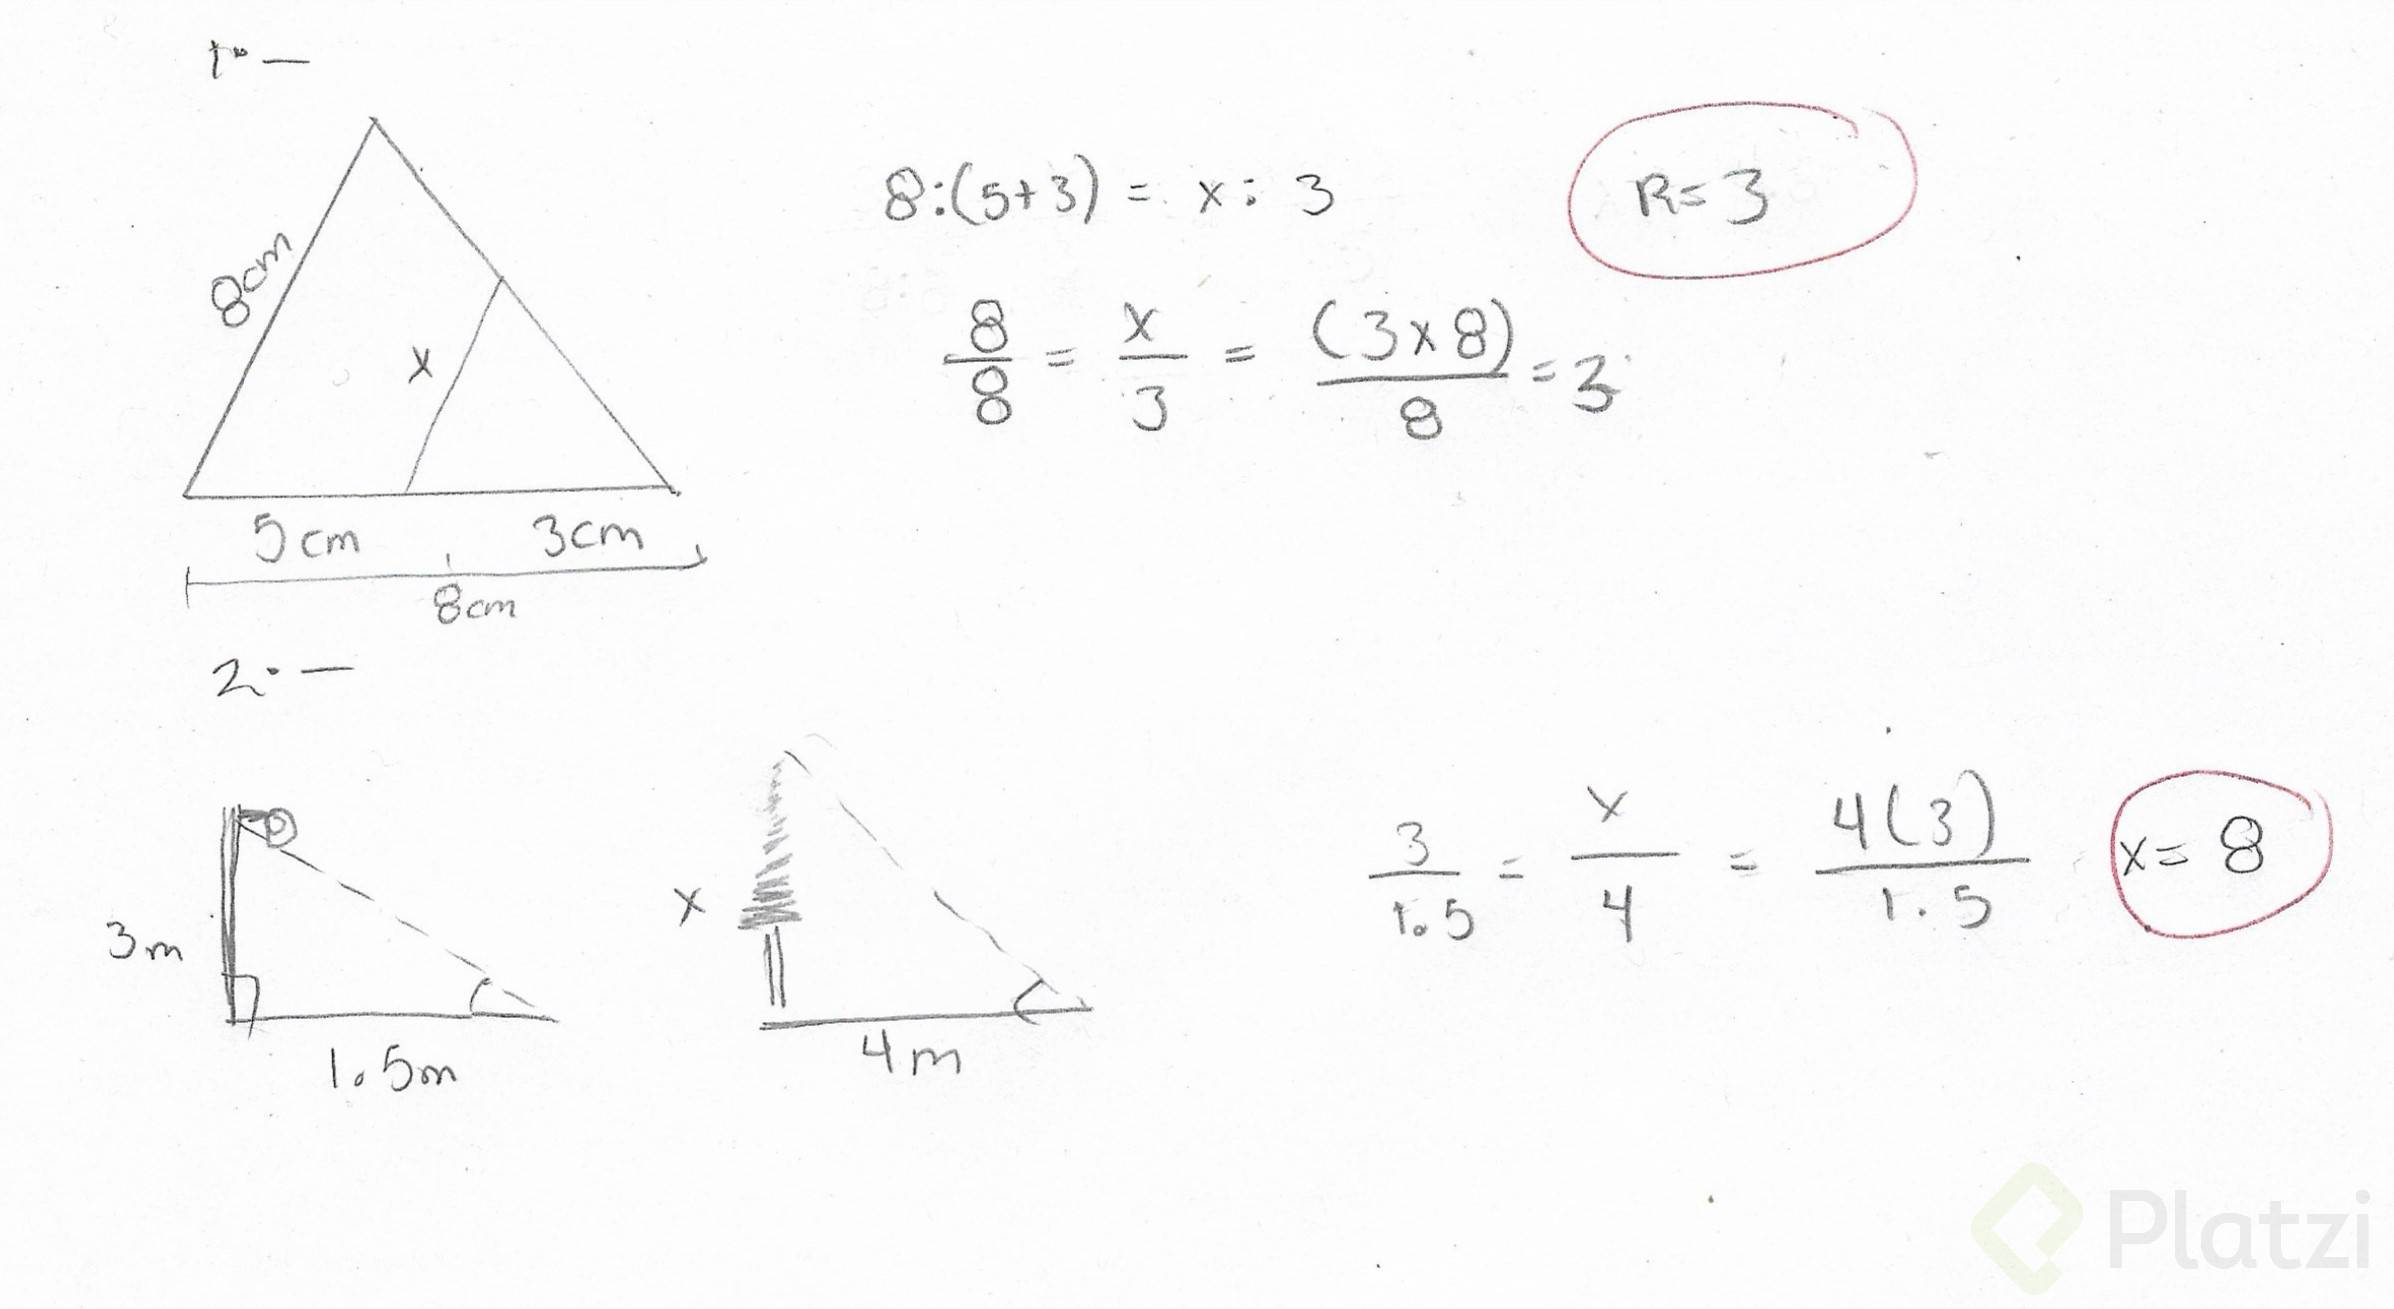 1.-
8cm
x
5cm
3cm
8cm
8:(5+3) = x:3
R=3
8/8 = x/3 = (3x8)/8 = 3
2.-
3m
1.5m
x
4m
3/1.5 = x/4 = 4(3)/1.5
x= 8
Platzi